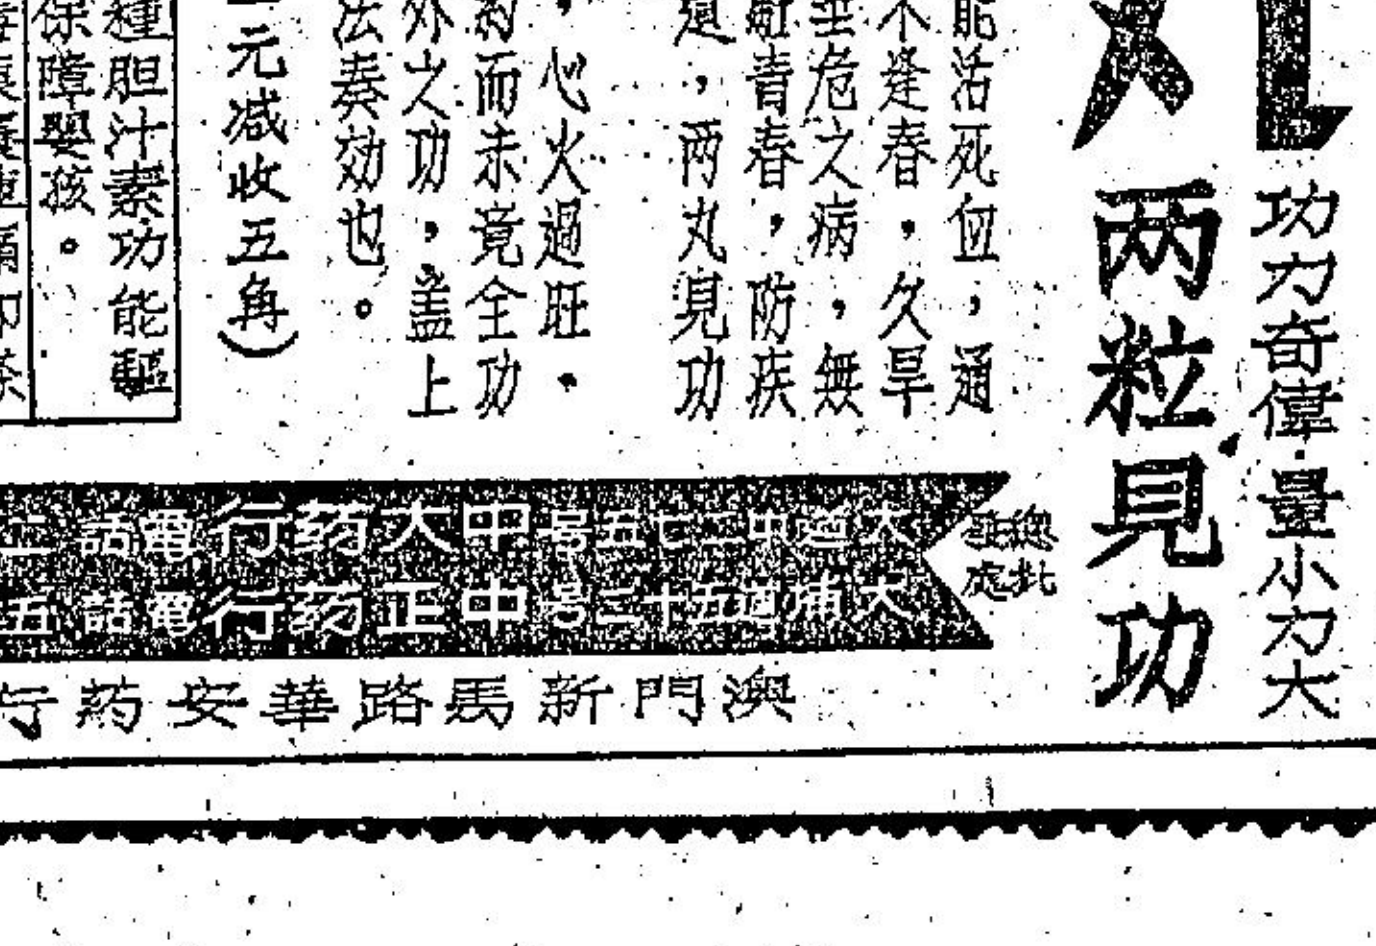 功力奇偉·量小力大
两粒見功
能活死血，通
不逢春，久旱
垂危之病，無
駐青春，防疾
，两丸見功
，心火過旺·
葯而未竟全功
外之功，盖上
法奏効也。
元减收五角)
種胆汁素功能驅
保障嬰孩。
總批
處
太道中二七五号甲大药行電話二
大埔道五十三号中正药行電話五
澳門新馬路華安葯行